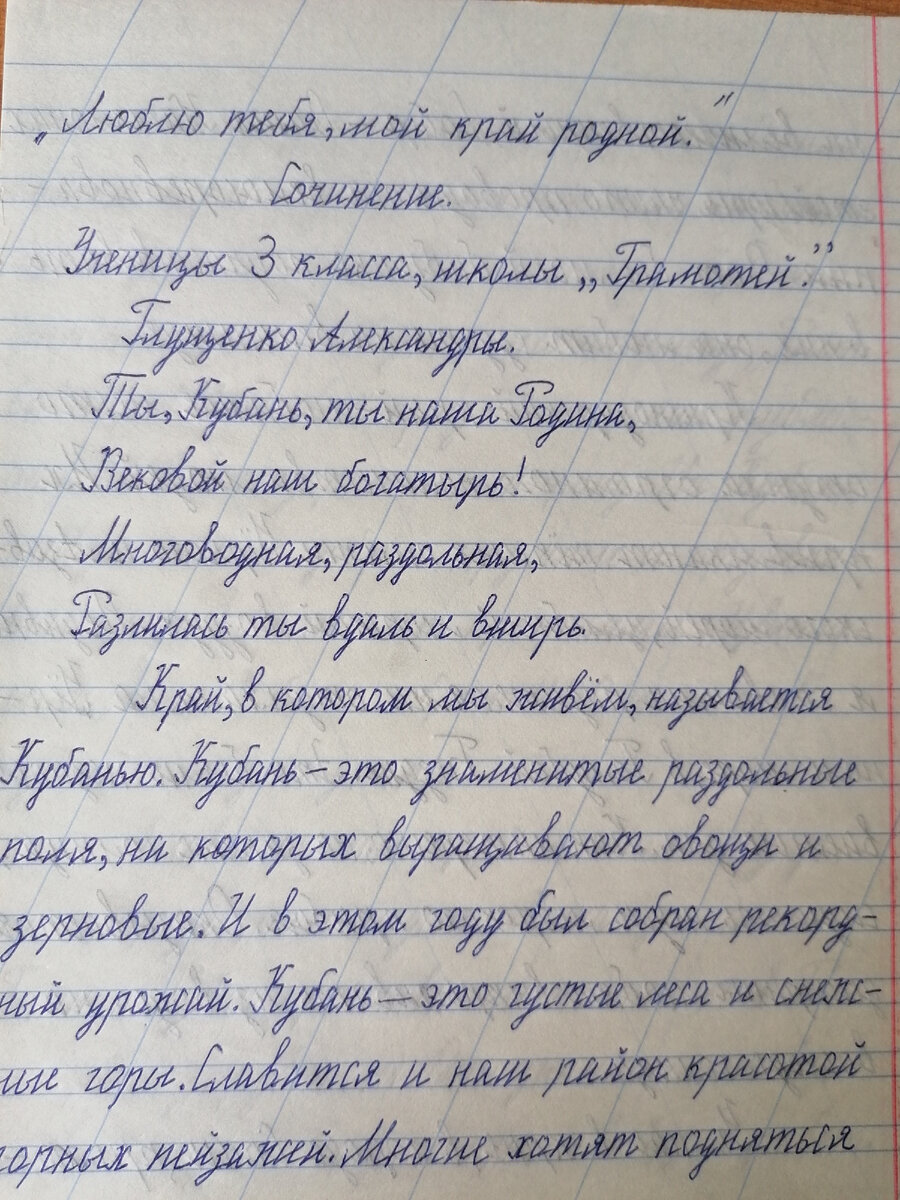 „Люблю тебя, мой край родной."
Сочинение.
Ученицы 3 класса, школы „Грамотей."
Глущенко Александры.
Ты, Кубань, ты наша Родина,
Вековой наш богатырь!
Многоводная, раздольная,
Разлилась ты вдаль и вширь.
Край, в котором мы живём, называется
Кубанью. Кубань – это знаменитые раздольные
поля, на которых выращивают овощи и
зерновые. И в этом году был собран рекорд-
ный урожай. Кубань – это густые леса и снеж-
ные горы. Славится и наш район красотой
горных пейзажей. Многие хотят подняться